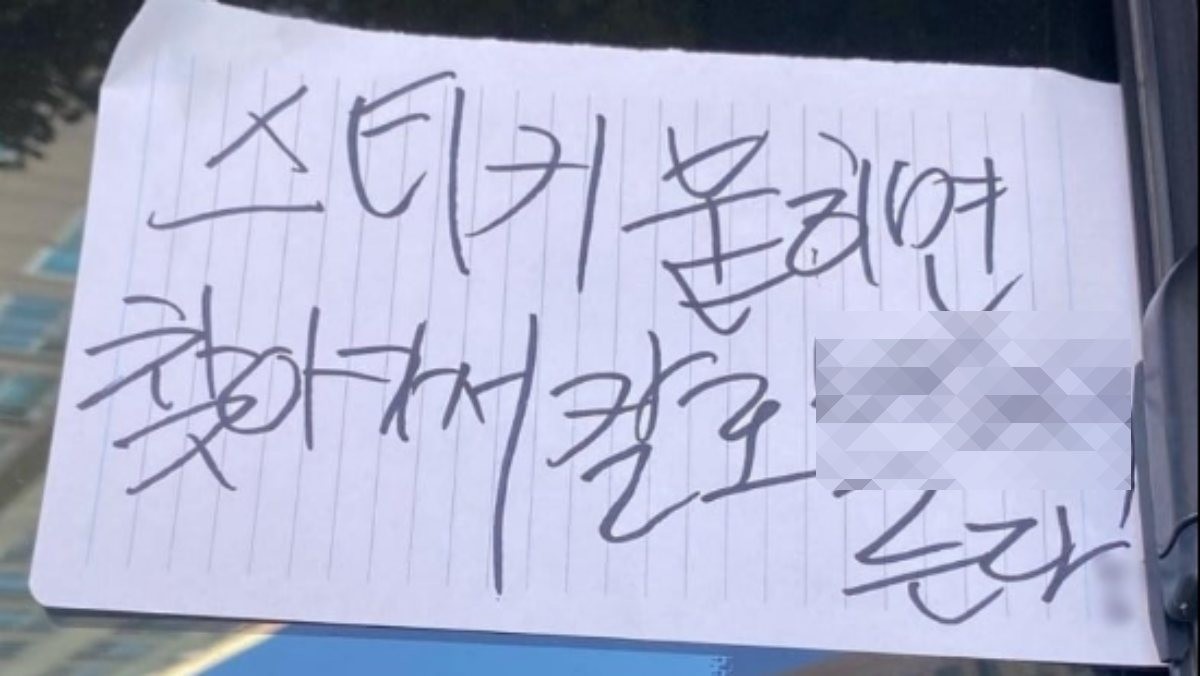 스티커 문히면
찾아가서 칼로
는다